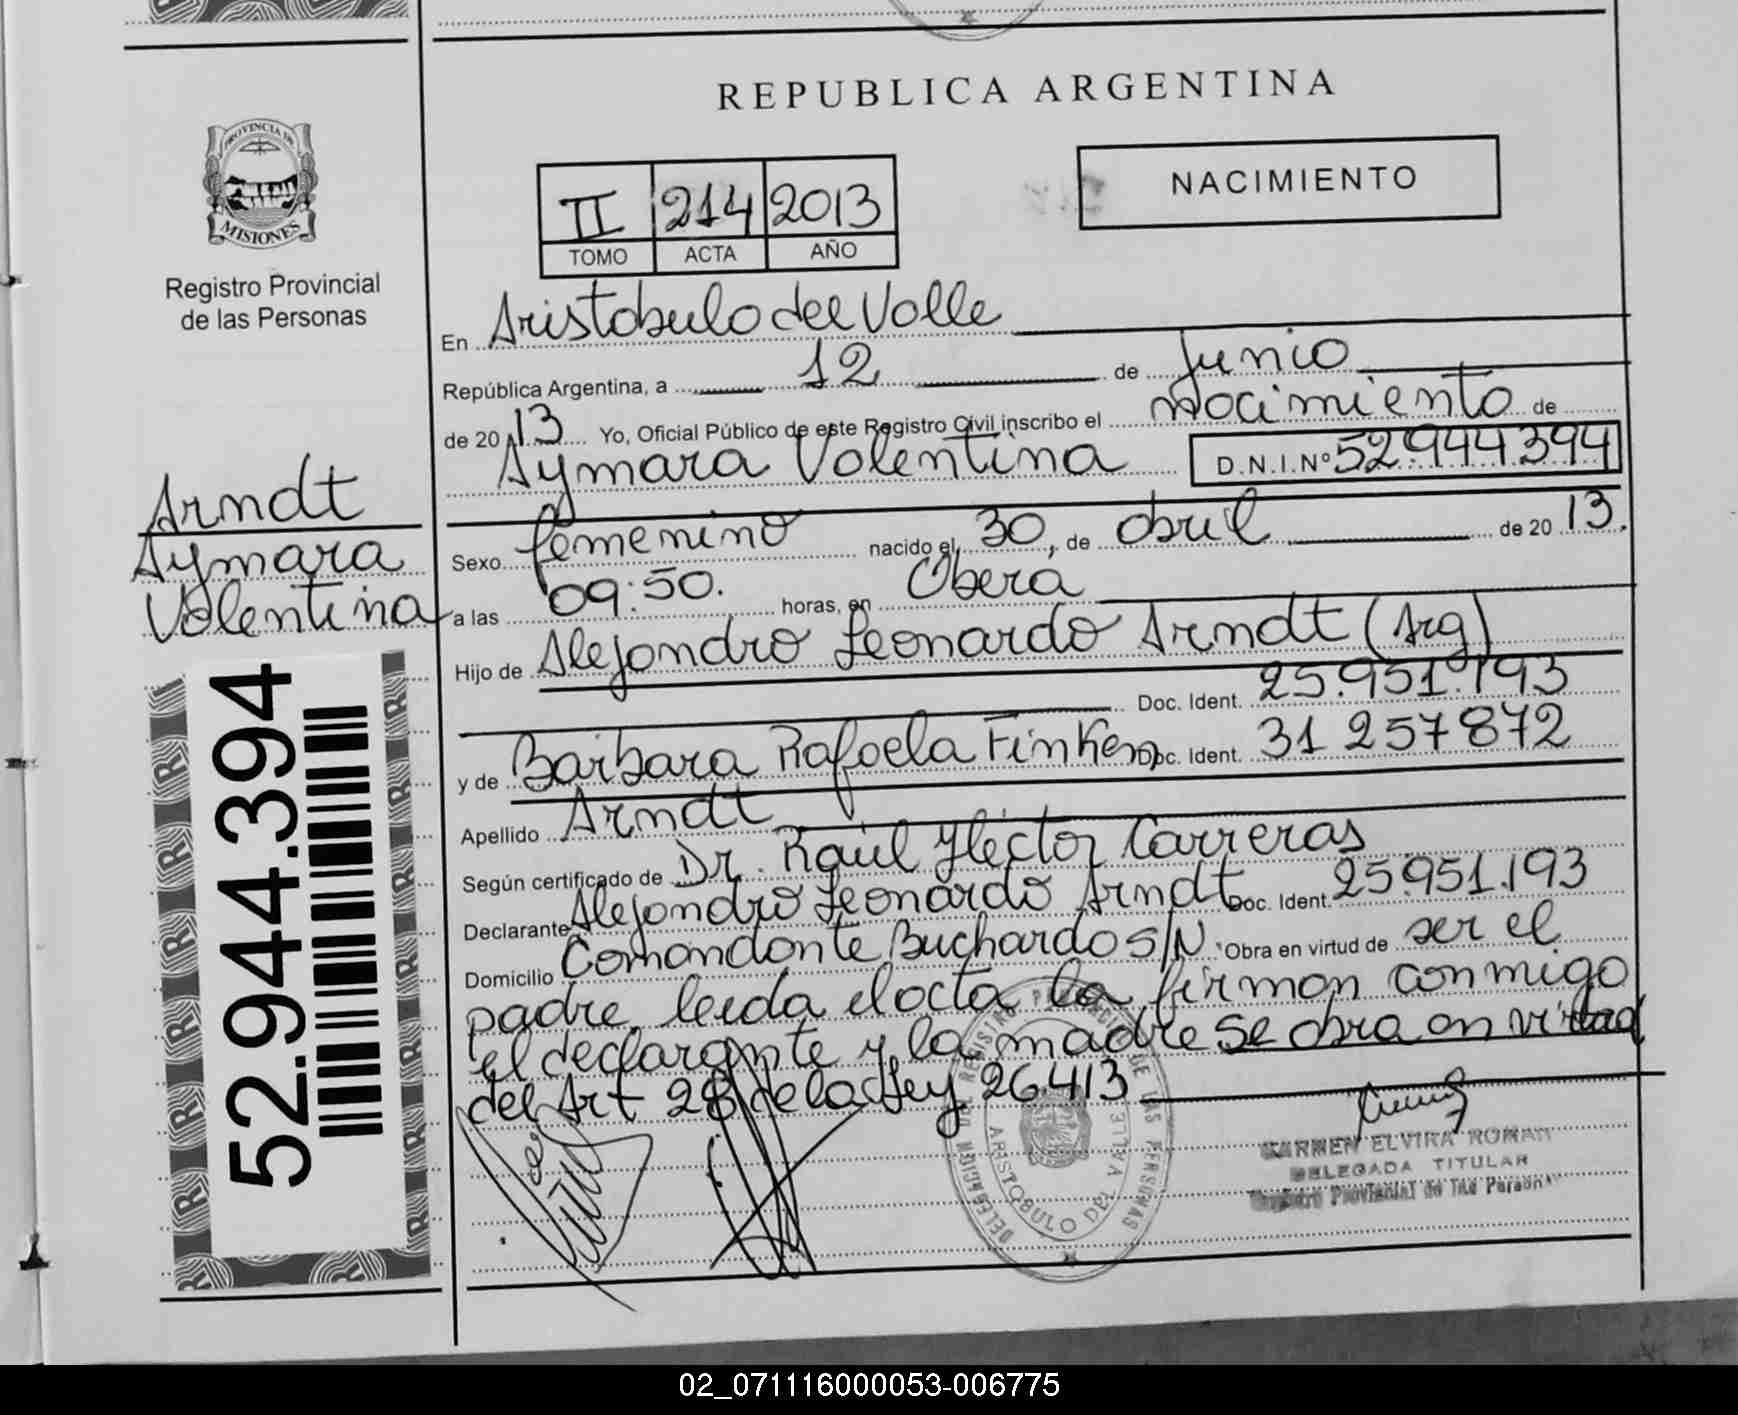 REPUBLICA ARGENTINA
PROVINCIA DE
MISIONES
Registro Provincial
de las Personas
II 214 2013
TOMO ACTA AÑO
NACIMIENTO
En Aristobulo del Valle
República Argentina, a 12 de Junio
de 2013 Yo, Oficial Público de este Registro Civil inscribo el nacimiento de
Aymara Valentina D.N.I.Nº 52.944.394
Sexo femenino nacido el 30, de abril de 2013.
a las 09:50. horas, en Obera
Hijo de Alejandro Leonardo Arndt (Arg)
Doc. Ident. 25.951.193
y de Barbara Rafaela Finken Doc. Ident. 31 257 872
Apellido Arndt
Según certificado de Dr. Raúl Héctor Carreras
Declarante Alejandro Leonardo Arndt Doc. Ident. 25.951.193
Domicilio Comandante Buchardo S/N. Obra en virtud de ser el
padre, leida el acta la firman conmigo
el declarante y la madre se obra en virtud
del Art 28 de la Ley 26.413
Arndt
Aymara
Valentina
52.944.394
DELEGACION DEL REGISTRO PROVINCIAL DE LAS PERSONAS
ARISTOBULO DEL VALLE
CARMEN ELVIRA ROMAN
DELEGADA TITULAR
Registro Provincial de las Personas
02_071116000053-006775